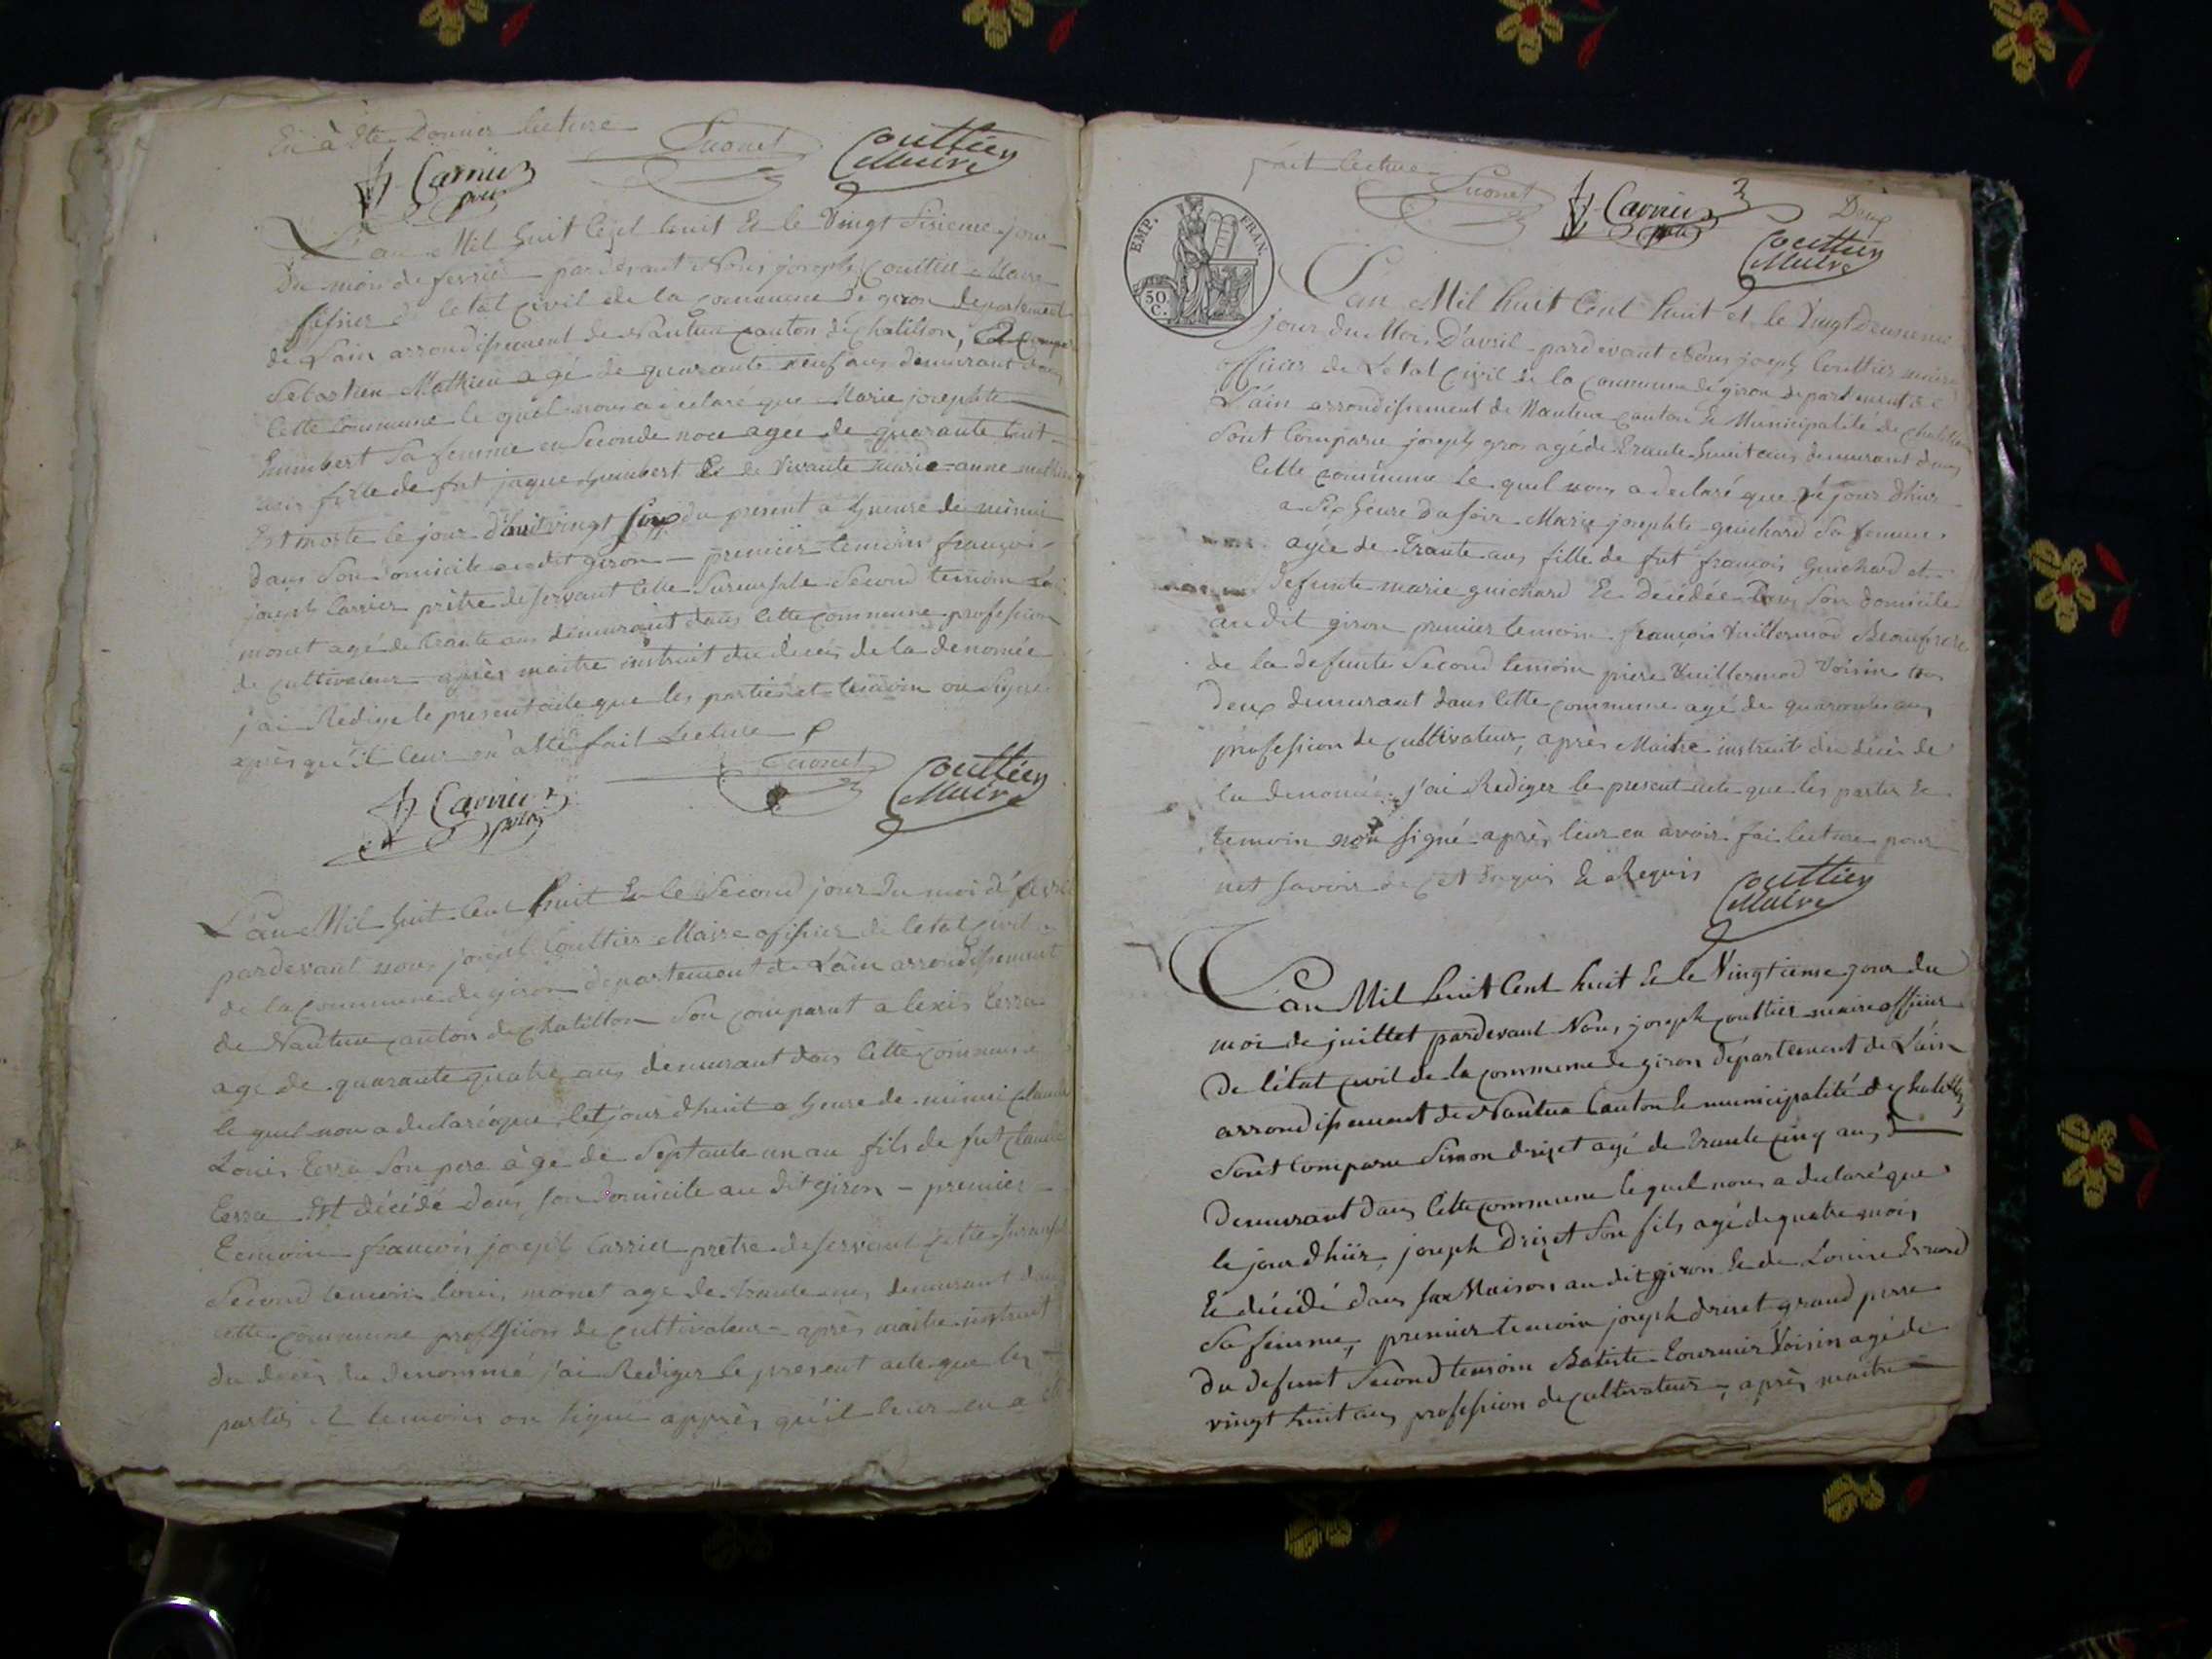 En à Ete Donner lecture
Carrier
prètre
Monet
Couttier
Maire
L'an Mil huit Cent huit Et le Vingt Sixieme jour
Du mois de fevrié pardevant Nous joseph Couttier Maire
offisier de letat Civil de la commune de giron departement
de Lain arrondissement de Nantua canton de Chatillon, Est
Sebastien Mathieu agé de quarante neuf ans demurant dans
Cette commune le quel nous a declaré que Marie josephte
humbert Sa femme en Seconde noce agee de quarante huit
ans fille de fut jaque humbert Et de Vivante marie-anne
Est morte le jour d'huit vingt six du present a heure de minui
dans Son domicile au dit giron — premier temoin françois
joseph Carrier prètre deservant cette Sucursale Second temoin
monet agé de trante ans demurant dans cette commune profession
de cultivateur après maitre instruit du décès de la denomée
j'ai Rediger le present acte que les parties et temoin on Signé
après qu'il leur en a Eté fait Lecture
Carrier
prètre
Monet
Couttier
Maire
L'an Mil huit Cent huit Et le Second jour du moi d'avril
pardevant nous joseph Couttier Maire offisier de letat Civil
de la commune de giron departement de Lain arrondissement
de Nantua canton de Chatillon Son comparut alexis
age de quarante quatre ans demurant dans cette commune
le quel nou a declaré que cet jour dhuit a heure de minui Claude
Louis Son pere àgé de Septante un an fils de fut Claude
Est décédé dans son domicile au dit giron — premier
temoin françois joseph Carrier pretre deservant cette Sucursale
Second temoin louis monet age de trante ans demurant dans
cette commune profession de cultivateur après maitre instruit
du deces du denommé j'ai Rediger le present acte que les
parties et temoin on Signé apprès qu'il leur en a Eté
fait lecture
Monet
Carrier
prètre
Deux
Couttier
Maire
EMP. FRAN.
50 C.
L'an Mil huit Cent huit et le Vingt Deuxieme
jour du Mois D'avril pardevant Nous joseph Couttier maire
officier de Letat Civil de la Commune de giron departement de
L'ain arrondissement de Nantua canton Et Municipalité de Chatillon
Sont Comparu joseph gros agé de trante huit ans demurant dans
Cette commune le quel nous a declaré que le jour dhier
a Six heure du soir Marie josephte guichard Sa femme
agée de trante ans fille de fut françois Guichard et
defunte marie guichard Et Décédée Dans Son domicile
au dit giron premier temoin françois Vuillermod Beaufrere
de la defunte Second temoin piere Vuillermod Voisin tos
deux demurant dans cette commune agé de quarante ans
profession de cultivateur, après Maitre instruit du décès de
la denomée j'ai Rediger le present acte que les parties Et
temoin non signé après leur en avoir fai lecture pour
net savoir de cet Enquis Et Requis
Couttier
Maire
L'an Mil huit Cent huit Et le Vingtieme jour du
moi de juillet pardevant Nous joseph couttier maire officier
De l'état civil de la commune de giron département de L'ain
arrondissement de Nantua Canton Et municipalité de Chatillon
Sont Comparu Simon drizet agé de trante cinq ans
Demurant dans Cette commune le quel nous a declaré que
le jour dhiér, joseph Drizet Son fils agé de quatre mois
Et décédé dans sa Maison au dit giron Et de Louise Evrard
Sa femme, premier temoin joseph drizet grand perre
du defunt Second temoin Batiste tournier Voisin agé de
vingt huit ans profession de cultivateur, après maitre